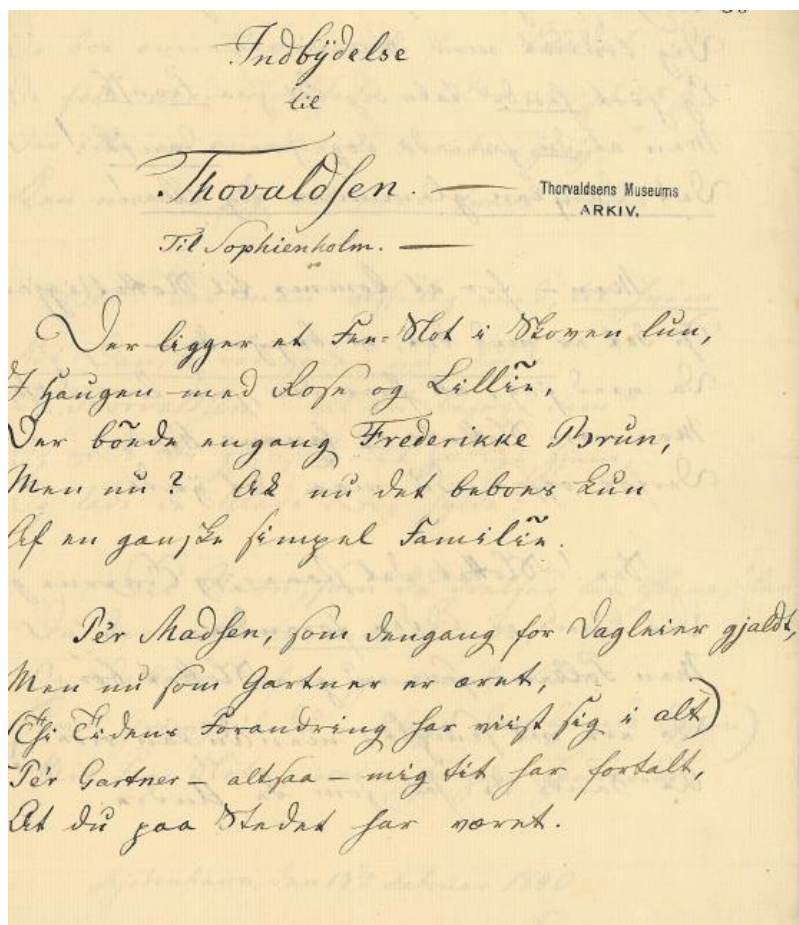 Indbÿdelse
til
Thovaldsen. —
Thorvaldsens Museums
ARKIV.
Til Sophienholm. —
Der ligger et Fee-Slot i Skoven lun,
I Haugen med Rose og Lillie,
Der boede engang Frederikke Brun,
Men nu? Ak nu det beboes kun
Af en ganske simpel Familie.
Pér Madsen, som dengang for Dagleier gjaldt,
Men nu som Gartner er æret,
(Thi Tidens Forandring har viist sig i alt)
Pér Gartner — altsaa — mig tit har fortalt,
At du paa Stedet har været.